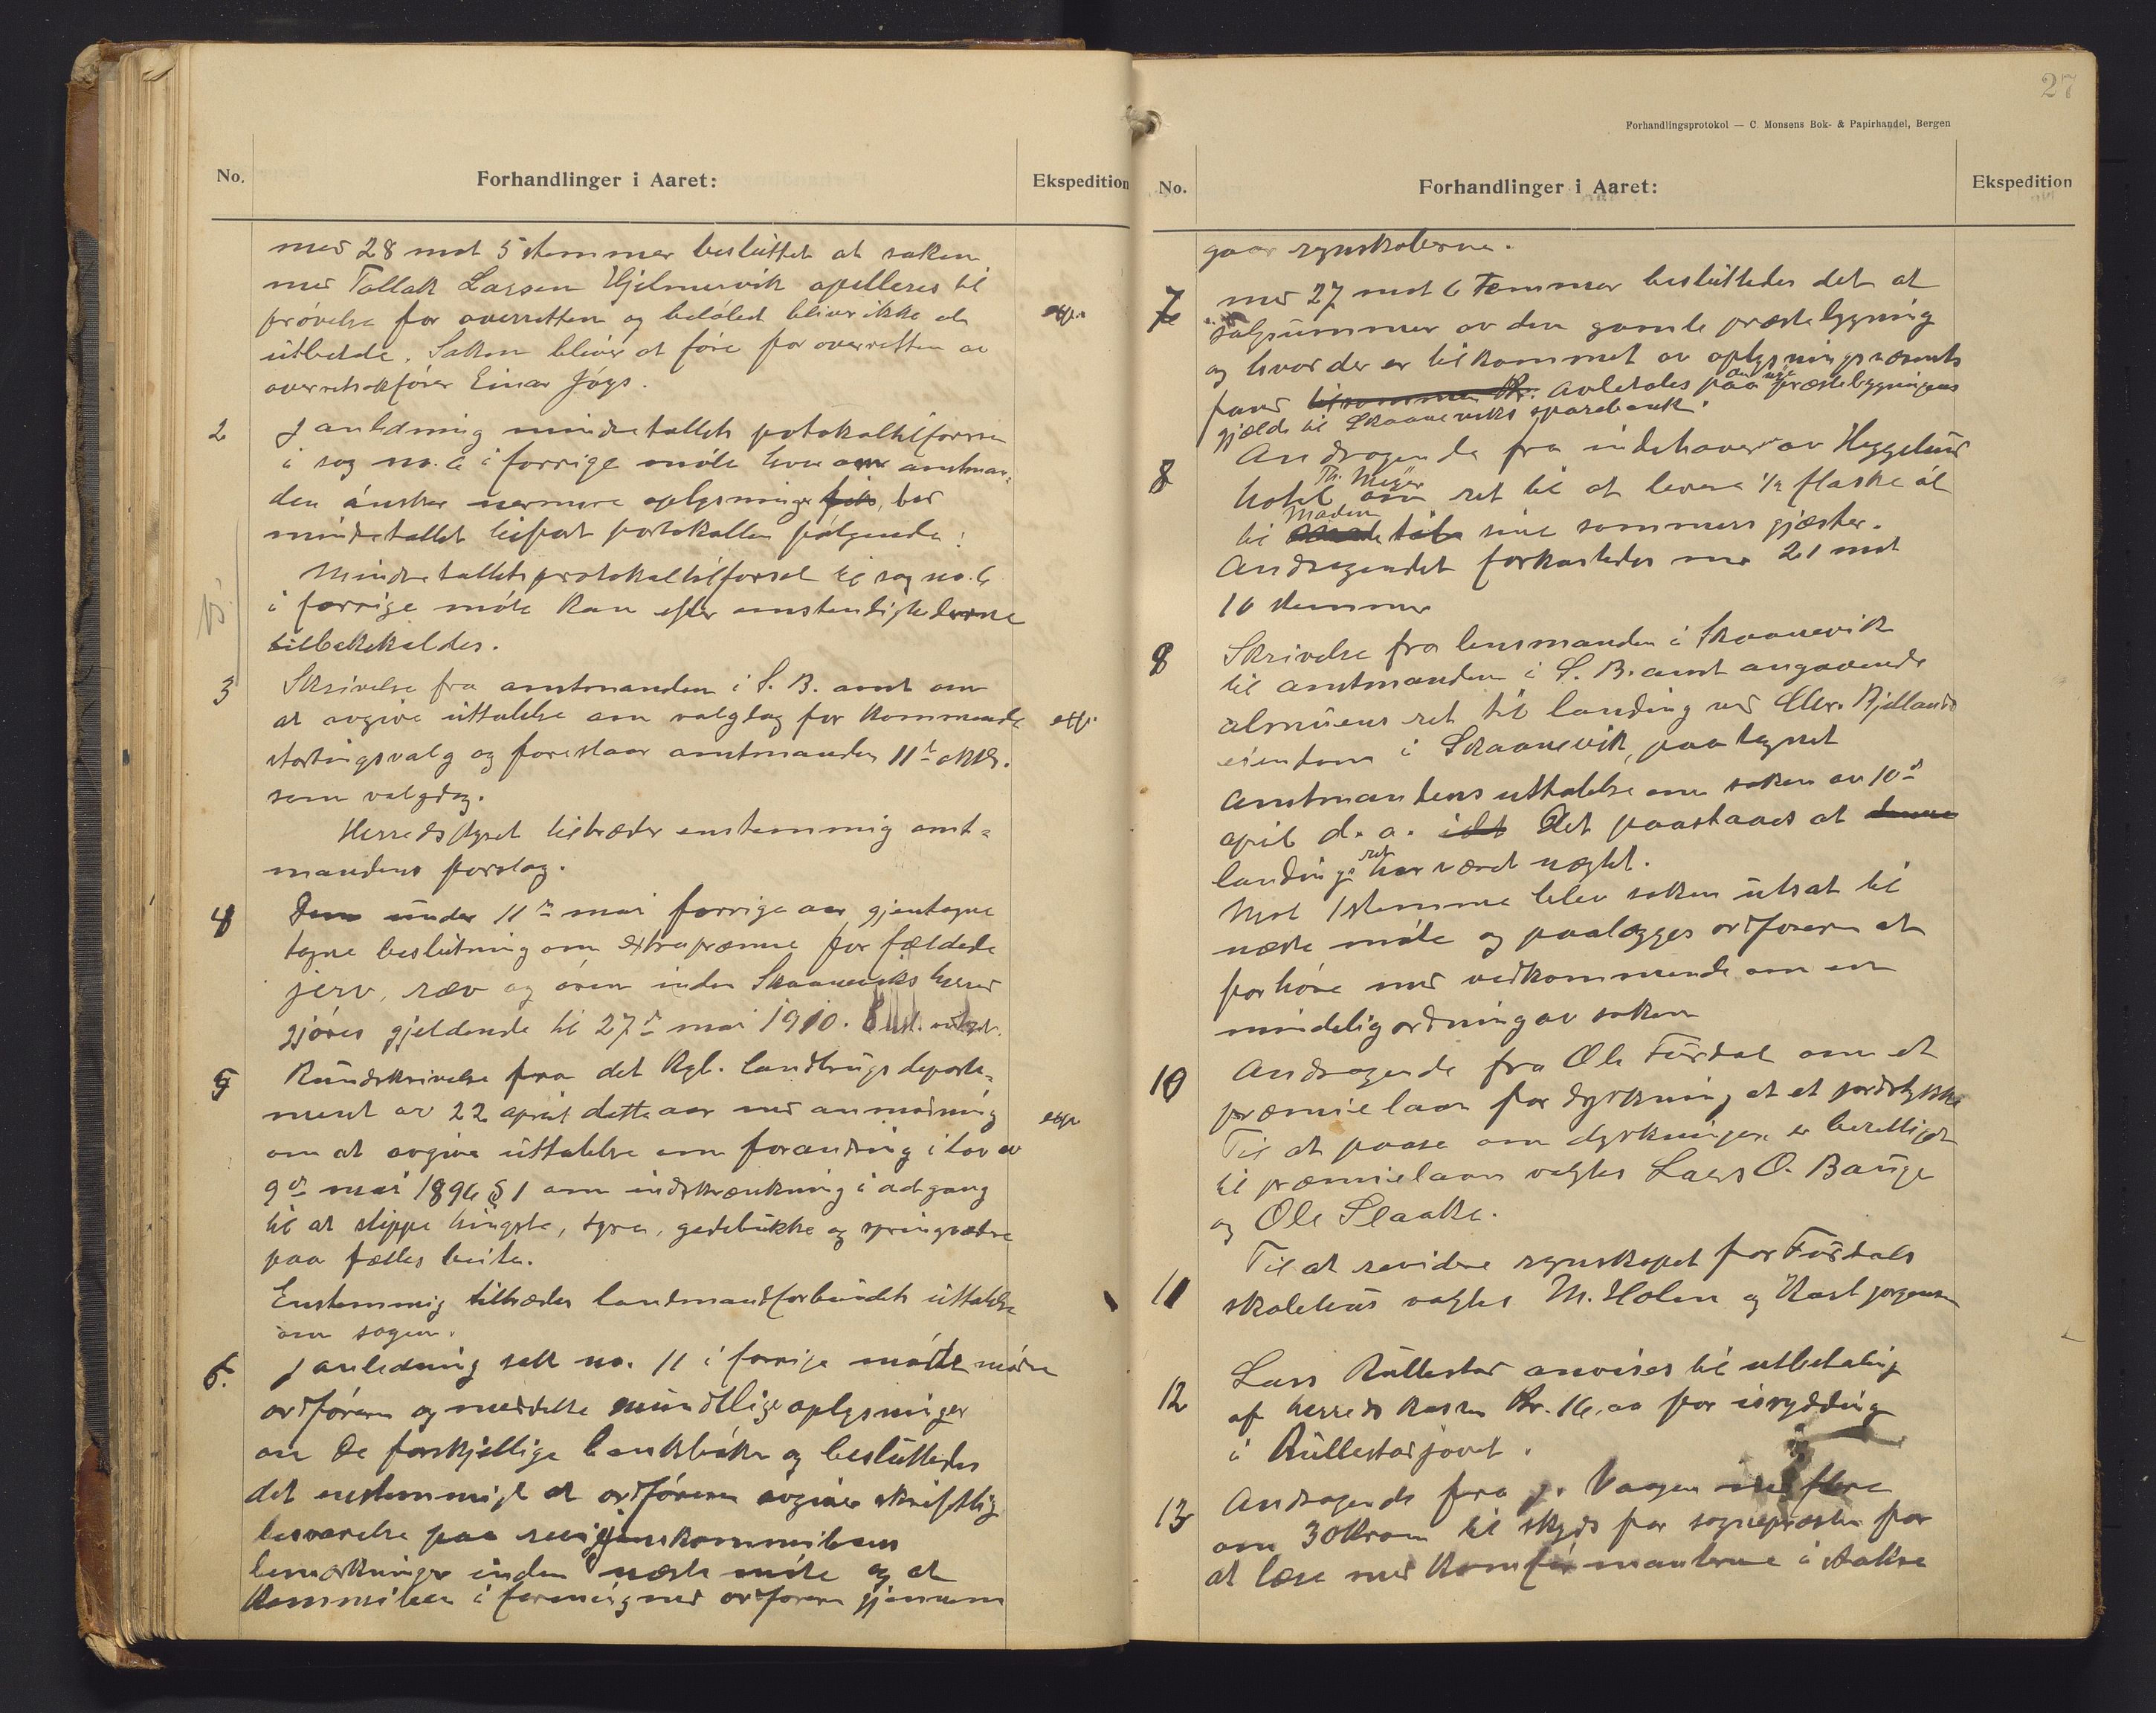 No.
Forhandlinger i Aaret:
Ekspedition
med 28 mot 5 stemmer besluttet at saken
med Tollak Larsen Hjelmervik apelleres til
prøvelse for overretten og beløbet bliver ikke at
utbetale. Saken bliver at føre for overretten av
overretssakfører Einar
exp.
2 I anledning mindretallets protokoltilførsel
i sag no. 6 i forrige møte hvorom amtman-
den ønsker nærmere oplysninger, bad
mindretallet tilført protokollen følgende:
Mindretallets protokoltilførsel til sag no. 6
i forrige møte kan efter omstændighederne
tilbakekaldes.
3 Skrivelse fra amtmanden i S. B. amt om
at avgive uttalelse om valgdag for kommende
stortingsvalg og foreslaar amtmanden 11te oktbr.
som valgdag.
exp.
Herredstyret tiltræder enstemmig amt-
mandens forslag.
4 Den under 11te mai forrige aar gjentagne
tagne beslutning om extrapræmie for fældede
jerv, ræv og ørn inden Skaaneviks herred
gjøres gjeldende til 27de mai 1910.
5 Rundskrivelse fra det Kgl. landbrugsdeparte-
ment av 22 april dette aar med anmodning
om at avgive uttalelse om forandring i lov av
9de mai 1896 § 1 om indskrænkning i adgang
til at slippe hingste, tyrer, gedebukke og springvædre
paa fælles beite.
exp.
Enstemmig tiltrædes landmandsforbundets uttalelse
om sagen.
6. I anledning sak no. 11 i forrige møtte møtte
ordføreren og meddelte mundtlige oplysninger
om de forskjellige bankbøker og besluttedes
det enstemmigt at ordføreren avgiver skriftlig
besvarelse paa revisjonskommiteens
bemerkninger inden næste møte og at
kommiteen i forening med ordføreren gjennem
27
Forhandlingsprotokol — C. Monsens Bok- & Papirhandel, Bergen
No.
Forhandlinger i Aaret:
Ekspedition
gaar regnskaberne.
7 med 27 mot 6 stemmer besluttedes det at
salgsummer av den gamle præstebygning
og hvad der er tilkommet av oplysningsvæsents
fond avbetales paa den nye præstebygnings
gjæld til Skaaneviks sparebank.
8 Andragende fra indehaver av Heggelund
hotel Th. Meyer om ret til at levere 1/2 flaske øl
til maden til sine sommers gjæster.
Andragendet forkastedes med 21 mot
10 stemmer
8 Skrivelse fra lensmanden i Skaanevik
til amtmanden i S. B. amt angaaende
almuens ret til landing ved Chr. Kjellands
eiendom i Skaanevik, paategnet
amtmandens uttalelse om saken av 10de
april d. a. Det paastaaes at
landingsret har været nægtet.
Mot 1 stemme blev saken utsat til
næste møte og paalægges ordføreren at
forhøre med vedkommende om en
mindelig ordning av saken
10 Andragende fra Ole Furdal om et
præmielaan for dyrkning at et jordstykke
Til at paase om dyrkningen er berettiget
til præmielaan valgtes Lars O. Bauge
og Ole Slaake.
11 Til at revidere regnskapet for Furdals
skolehus valgtes M. Holen og Karl Jørgensen
12 Lars Rullestad anvises til utbetaling
af herredskassen Kr. 16,00 for isrydding
i Rullestadjuvet.
13 Andragende fra J. Vaagen med flere
om 30 kroner til skyds for sogneprester for
at læse med konfirmanterne i Aakre